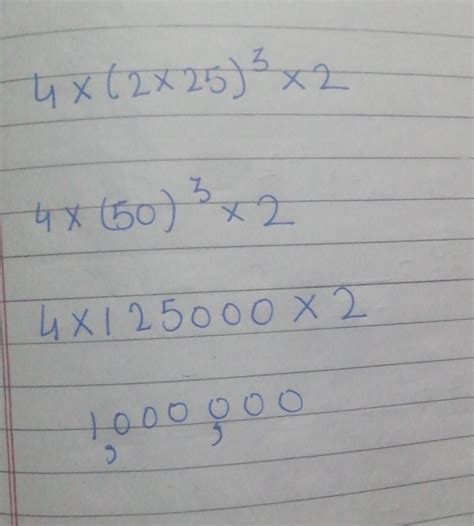 4×(2×25)³×2
4×(50)³×2
4×125000×2
1,000,000